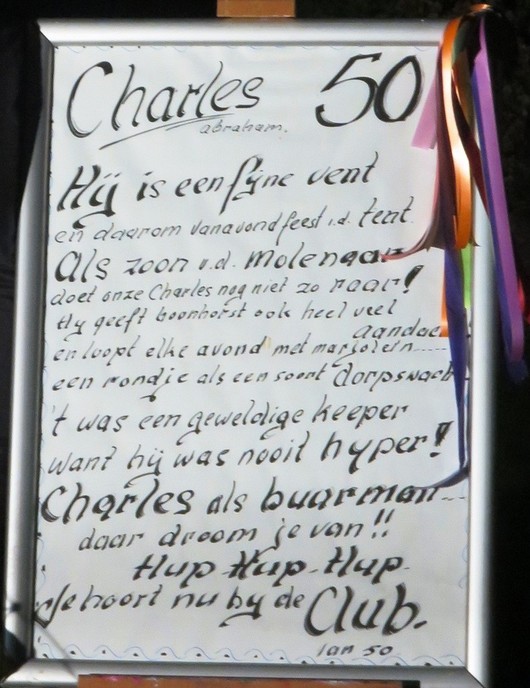 Charles 50
abraham.
Hij is een fyne vent
en daarom vanavond feest i.d. tent.
Als zoon v.d. Molenaar
doet onze Charles nog niet zo raar!
Hy geeft boonhorst ook heel veel
aandac
en loopt elke avond met marjolein
een rondje als een soort dorpswach
't was een geweldige keeper
want hij was nooit hyper!
Charles als buurman...
daar droom je van!!
Hup-Hup-Hup.
Je hoort nu by de Club.
Jan 50